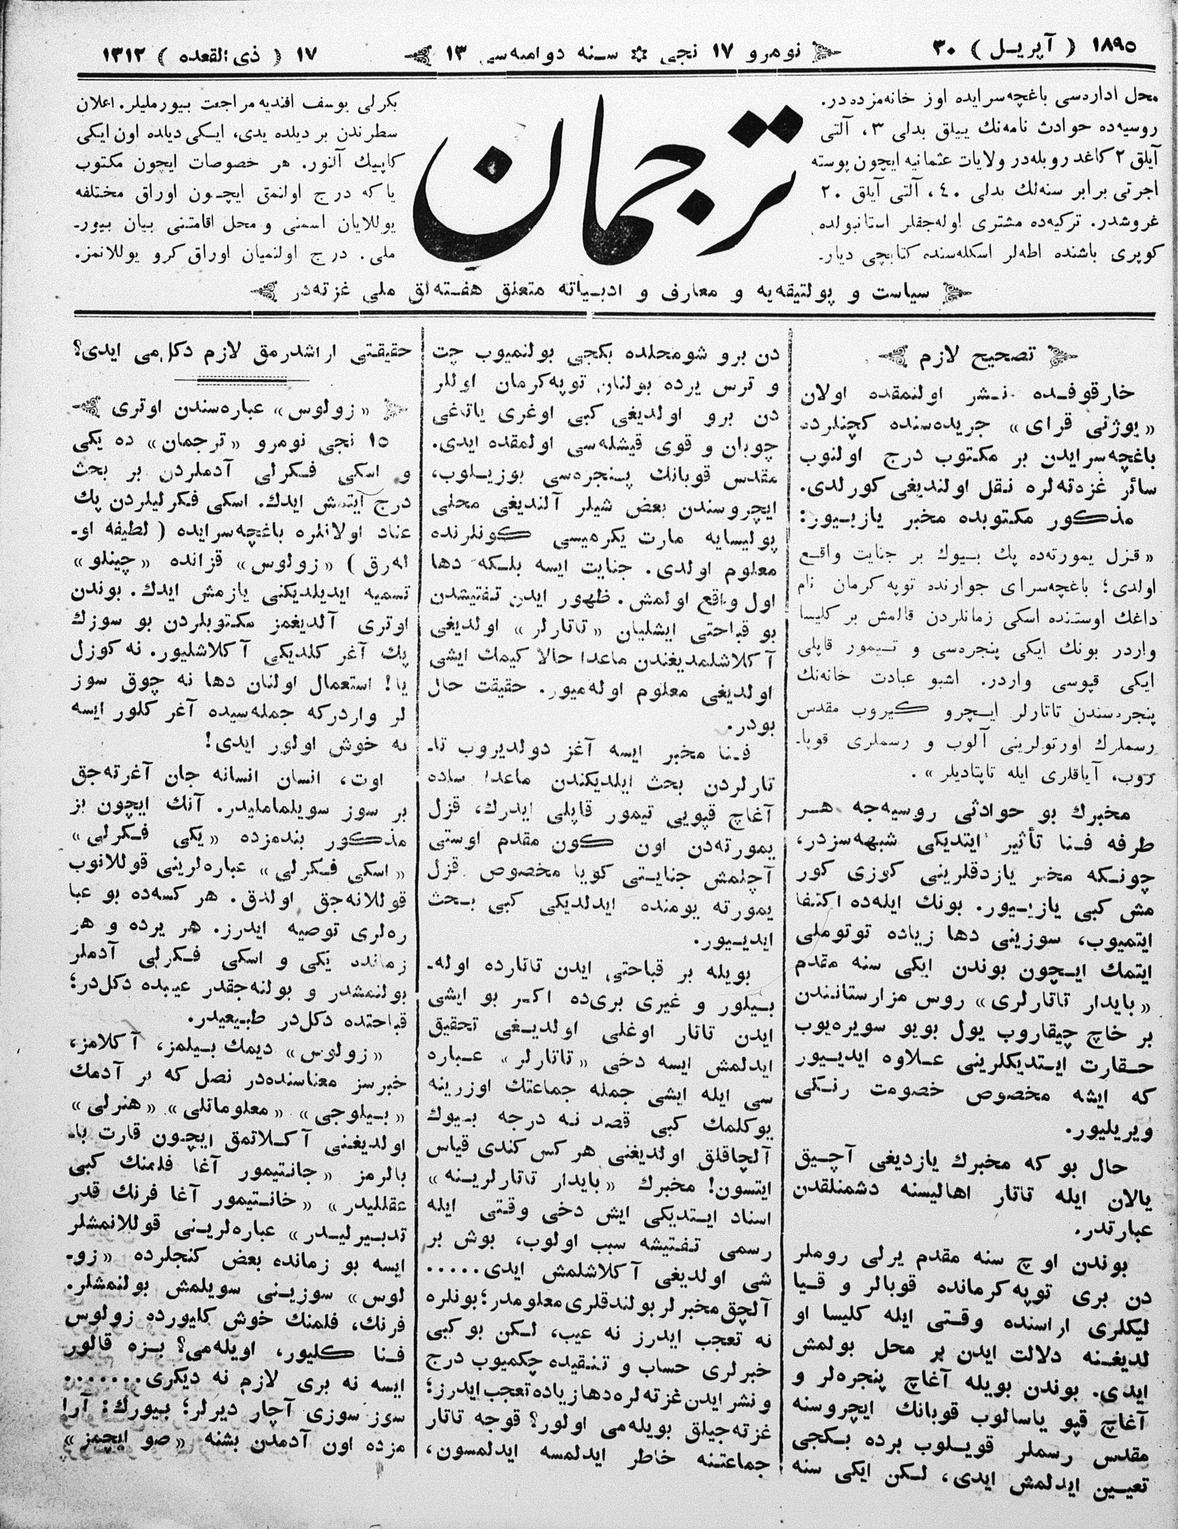 ١٨٩٥ ( آپریل ) ٣٠
نومرو ١٧ نجی ✡ سنه دوامیه‌سی ١٣
١٧ ( ذی القعده ) ١٣١٢
محل اداره‌سی باغچه‌سرایده اوز خانه‌مزده‌در.
روسیه‌ده حوادث نامه‌نك ییللق بدلی ٣، آلتی
آیلق ٢ كاغد روبله‌در ولایات عثمانیه ایچون پوسته
اجرتی برابر سنه‌لك بدلی ٤٠، آلتی آیلق ٢٠
غروشدر. تركیه‌ده مشتری اوله‌جقلر استانبولده
كوپری باشنده اطه‌لر اسكله‌سنده كتابچی دیار
ترجمان
بكرلی یوسف افندیه مراجعت بیورملیلر. اعلان
سطرندن بر دیلده یدی، ایكی دیلده اون ایكی
كاپیك آلنور. هر خصوصات ایچون مكتوب
یا كه درج اولنمق ایچون اوراق مختلفه
یوللایان اسمنی و محل اقامتنی بیان بیور-
ملی. درج اولنمیان اوراق كرو یوللانمز.
سیاست و پولتیقه‌یه و معارف و ادبیاته متعلق هفته‌لق ملی غزته‌در
تصحیح لازم
خارقوفده نشر اولنمقده اولان
«یوژنی قرای» جریده‌سنده كچنلرده
باغچه‌سرایدن بر مكتوب درج اولنوب
سائر غزه‌ته‌لره نقل اولندیغی كورلدی.
مذكور مكتوبده مخبر یازیور:
«قزل یمورته‌ده پك بیوك بر جنایت واقع
اولدی؛ باغچه‌سرای جوارنده توپه كرمان نام
داغك اوستنده اسكی زمانلردن قالمش بر كلیسا
واردر بونك ایكی پنجره‌سی و تیمور قاپلی
ایكی قپوسی واردر. اشبو عبادت خانه‌نك
پنجره‌سندن تاتارلر ایچرو كیروب مقدس
رسملرك اورتولرینی آلوب و رسملری قوپا-
روب، آیاقلری ایله تاپتادیلر».
مخبرك بو حوادثی روسیه‌جه هر
طرفه فنا تأثیر ایتدیكی شبهه‌سزدر،
چونكه مخبر یازدقلرینی كوزی كور
مش كبی یازیور. بونك ایله‌ده اكتفا
ایتمیوب، سوزینی دها زیاده توتوملی
ایتمك ایچون بوندن ایكی سنه مقدم
«بایدار تاتارلری» روس مزارستانندن
بر خاچ چیقاروب یول بویو سویره‌یوب
حقارت ایتدیكلرینی علاوه ایدیور
كه ایشه مخصوص خصومت رنكی
ویریلیور.
حال بو كه مخبرك یازدیغی آچیق
یالان ایله تاتار اهالیسنه دشمنلقدن
عبارتدر.
بوندن اوچ سنه مقدم یرلی روملر
دن بری توپه كرمانده قوبالر و قیا
لیكلری اراسنده وقتی ایله كلیسا او
لدیغنه دلالت ایدن بر محل بولمش
ایدی. بوندن بویله آغاچ پنجره‌لر و
آغاچ قپو یاسالوب قوبانك ایچروسنه
مقدس رسملر قویلوب برده بكجی
تعیین ایدلمش ایدی، لكن ایكی سنه
دن برو شو محلده بكجی بولنمیوب چت
و ترس یرده بولنان توپه كرمان اوللر
دن برو اولدیغی كبی اوغری یاتاغی
چوبان و قوی قیشله‌سی اولمقده ایدی.
مقدس قوبانك پنجره‌سی بوزیلوب،
ایچروسندن بعض شیلر آلندیغی محلی
پولیسایه مارت یكرمیسی كونلرنده
معلوم اولدی. جنایت ایسه بلكه دها
اول واقع اولمش. ظهور ایدن تفتیشدن
بو قباحتی ایشلیان «تاتارلر» اولدیغی
آكلاشلمدیغندن ماعدا حالا كیمك ایشی
اولدیغی معلوم اوله‌میور. حقیقت حال
بودر.
فنا مخبر ایسه آغز دولدیروب تا-
تارلردن بحث ایلدیكندن ماعدا ساده
آغاچ قپویی تیمور قاپلی ایدرك، قزل
یمورته‌دن اون كون مقدم اوستی
آچلمش جنایتی كویا مخصوص قزل
یمورته یومنده ایدلدیكی كبی بحث
ایدیور.
بویله بر قباحتی ایدن تاتارده اوله-
بیلور و غیری بری‌ده اكر بو ایشی
ایدن تاتار اوغلی اولدیغی تحقیق
ایدلمش ایسه دخی «تاتارلر» عباره
سی ایله ایشی جمله جماعتك اوزرینه
یوكلمك كبی قصد نه درجه بیوك
آلچاقلق اولدیغنی هر كس كندی قیاس
ایتسون! مخبرك «بایدار تاتارلرینه»
اسناد ایتدیكی ایش دخی وقتی ایله
رسمی تفتیشه سبب اولوب، بوش بر
شی اولدیغی آكلاشلمش ایدی.....
آلچق مخبرلر بولندقلری معلومدر؛ بونلره
نه تعجب ایدرز نه عیب، لكن بو كبی
خبرلری حساب و تنقیده چكمیوب درج
و نشر ایدن غزته‌لره دها زیاده تعجب ایدرز؛
غزته‌جیلق بویله‌می اولور؟ قوجه تاتار
جماعتنه خاطر ایدلمسه ایدلمسون،
حقیقتی اراشدرمق لازم دكل‌می ایدی؟
«زولوس» عباره‌سندن اوتری
١٥ نجی نومرو «ترجمان» ده یكی
و اسكی فكرلی آدملردن بر بحث
درج ایتمش ایدك. اسكی فكرلیلردن پك
عناد اولانلره باغچه‌سرایده (لطیفه او-
له‌رق) «زولوس» قزانده «چینلو»
تسمیه ایدیلدیكنی یازمش ایدك. بوندن
اوتری آلدیغمز مكتوبلردن بو سوزك
پك آغر كلدیكی آكلاشلیور. نه كوزل
یا! استعمال اولنان دها نه چوق سوز
لر واردركه جمله‌سیده آغر كلور ایسه
نه خوش اولور ایدی!
اوت، انسان انسانه جان آغرته‌جق
بر سوز سویلماملیدر. آنك ایچون بز
مذكور بندمزده «یكی فكرلی»
«اسكی فكرلی» عباره‌لرینی قوللانوب
قوللانه‌جق اولدق. هر كسه‌ده بو عبا
ره‌لری توصیه ایدرز. هر یرده و هر
زمانده یكی و اسكی فكرلی آدملر
بولنمشدر و بولنه‌جقدر عیبده دكل‌در؛
قباحتده دكل‌در طبیعیدر.
«زولوس» دیمك بیلمز، آكلامز،
خبرسز معناسنده‌در نصل كه بر آدمك
«بیلوجی» «معلوماتلی» «هنرلی»
اولدیغنی آكلاتمق ایچون قارت با-
بالرمز «جانتیمور آغا فلمنك كبی
عقللیدر» «خانتیمور آغا فرنك قدر
تدبیرلیدر» عباره‌لرینی قوللانمشلر
ایسه بو زمانده بعض كنجلرده «زو-
لوس» سوزینی سویلمش بولنمشلر.
فرنك، فلمنك خوش كلیورده زولوس
فنا كلیور، اویله‌می؟ بزه قالور
ایسه نه بری لازم نه دیكری.......
سوز سوزی آچار دیرلر؛ بیورك: آرا
مزده اون آدمدن بشنه «صو ایچمز»